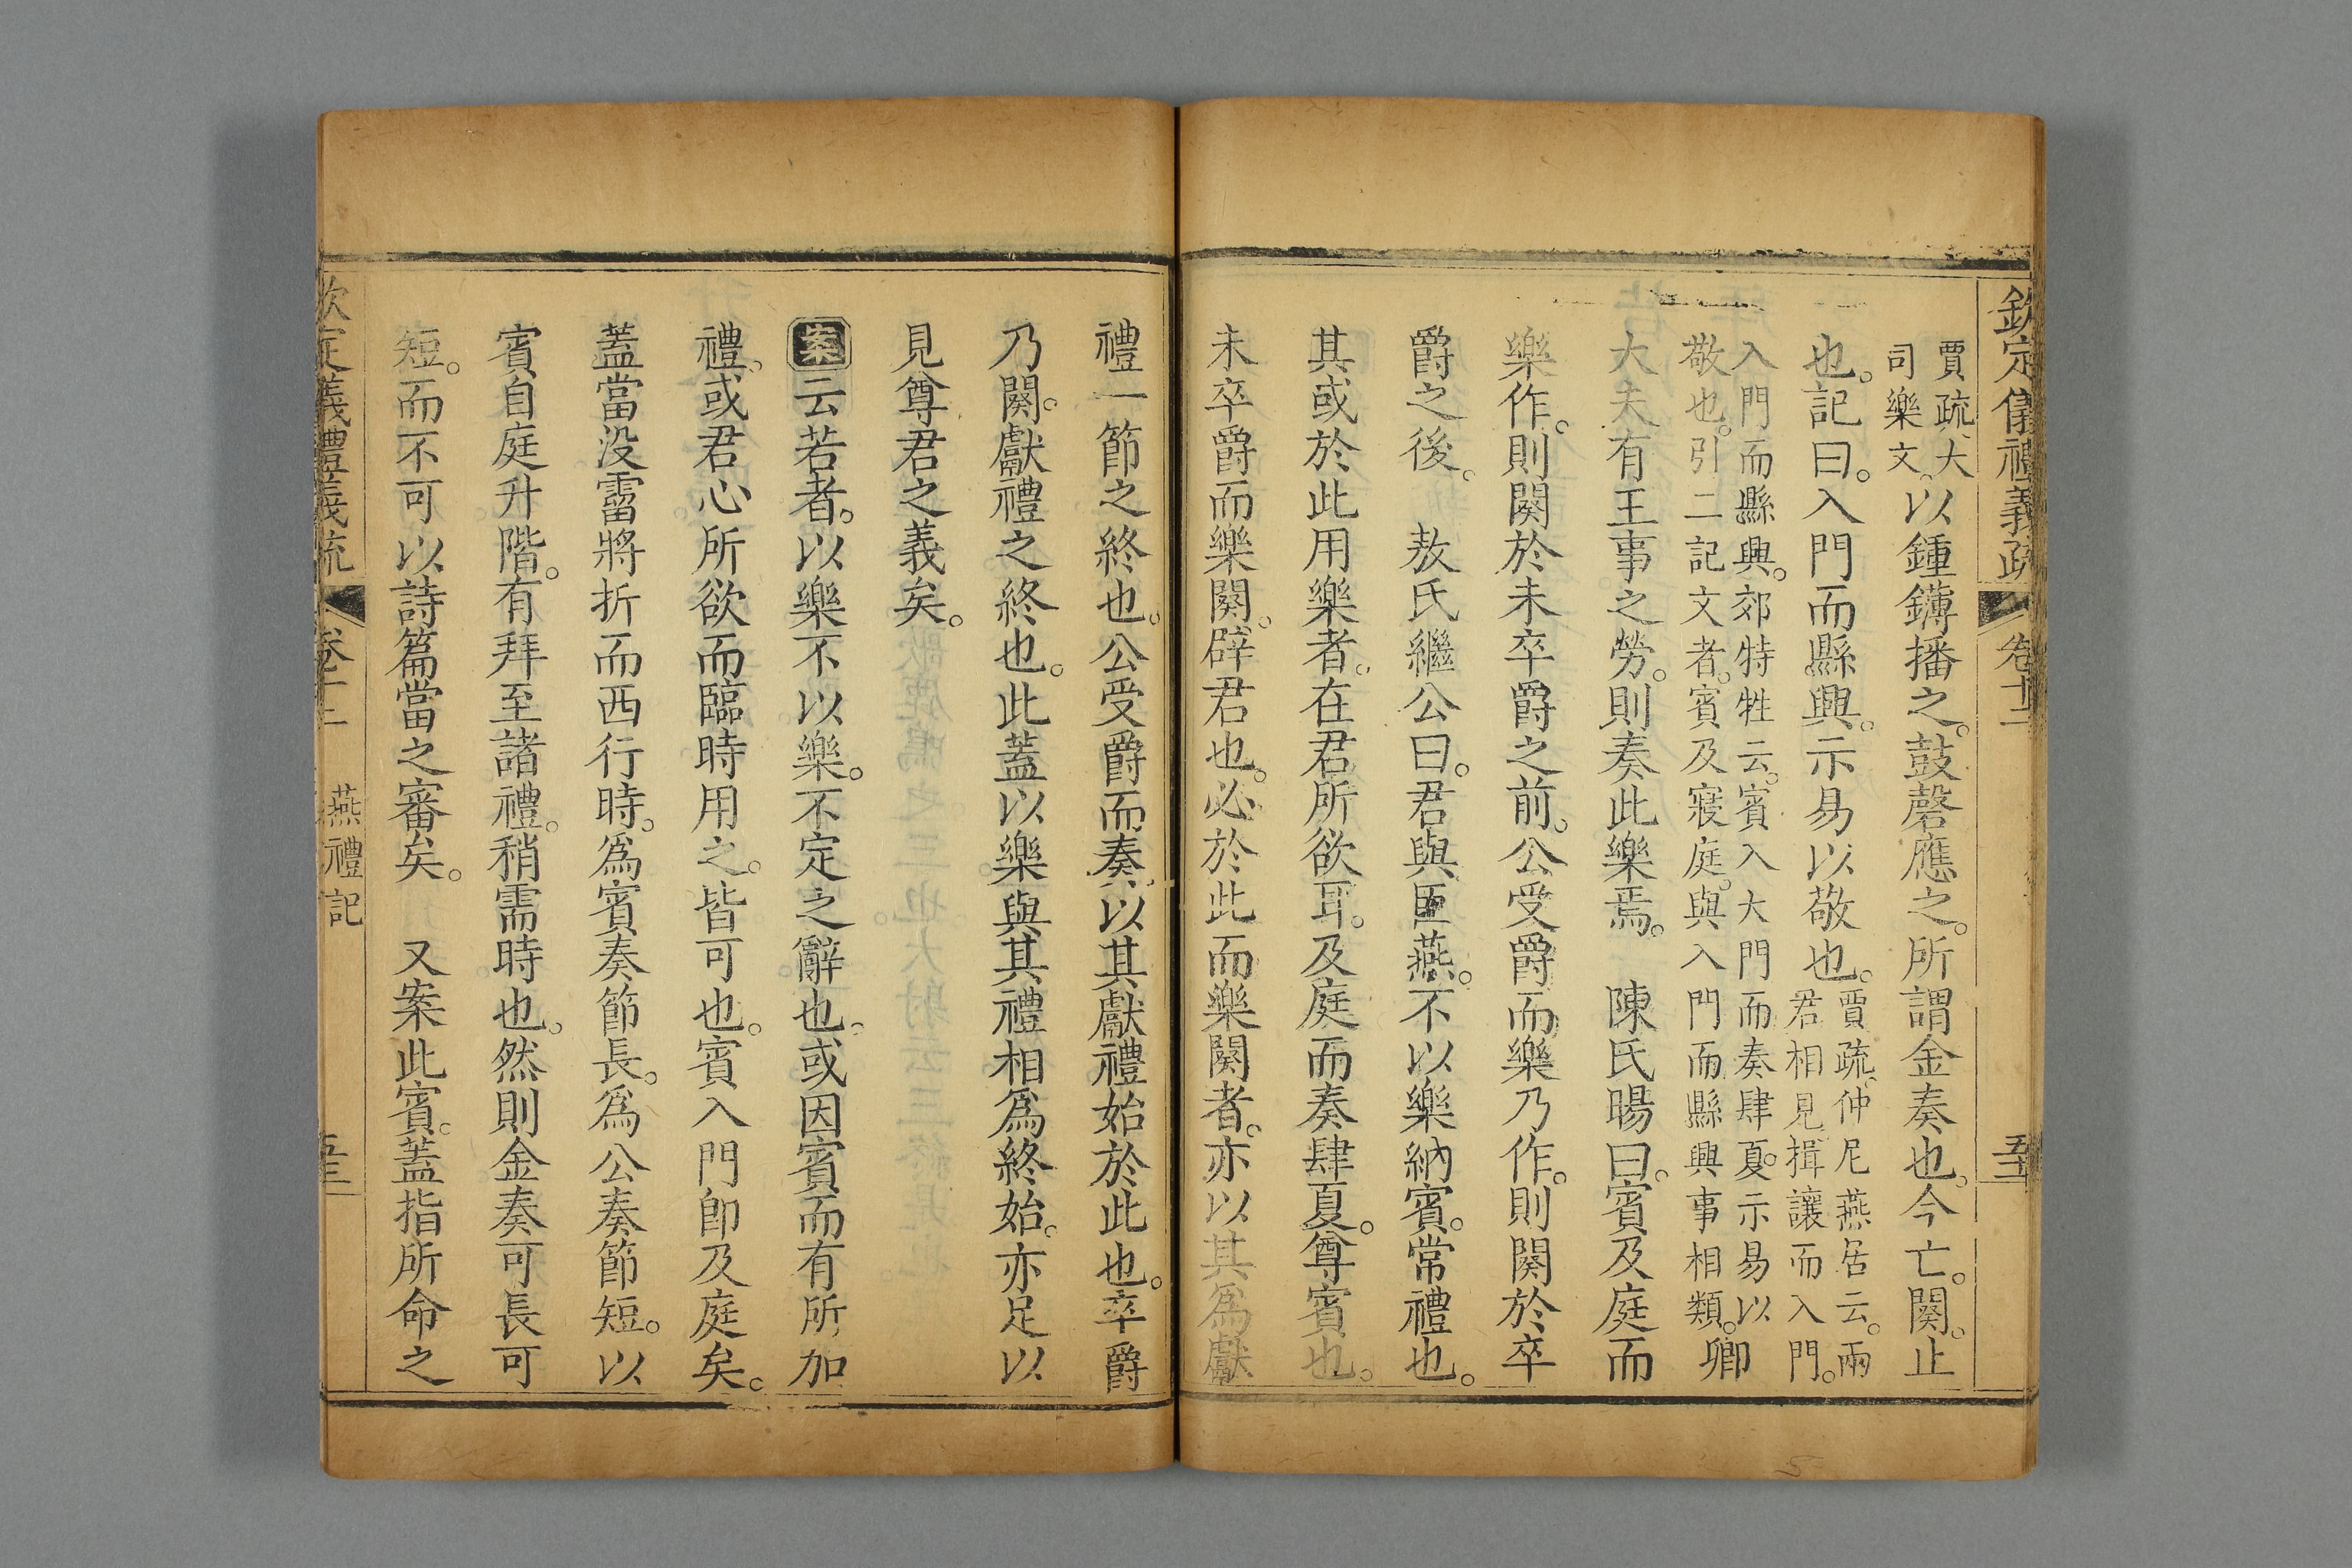 欽定儀禮義疏 卷十二 五十二
賈疏大司樂文。以鍾鑮播之。鼓磬應之。所謂金奏也。今亡。闋。止
也。記曰。入門而縣興。示易以敬也。賈疏。仲尼燕居云。兩君相見。揖讓而入門。
入門而縣興。郊特牲云。賓入大門而奏肆夏。示易以敬也。引二記文者。賓及寢庭。與入門而縣興事相類。卿
大夫有王事之勞。則奏此樂焉。 陳氏暘曰。賓及庭而
樂作。則闋於未卒爵之前。公受爵而樂乃作。則闋於卒
爵之後。 敖氏繼公曰。君與臣燕。不以樂納賓。常禮也。
其或於此用樂者。在君所欲耳。及庭而奏肆夏。尊賓也。
未卒爵而樂闋。辟君也。必於此而樂闋者。亦以其爲獻
禮一節之終也。公受爵而奏。以其獻禮始於此也。卒爵
乃闋。獻禮之終也。此蓋以樂與其禮相爲終始。亦足以
見尊君之義矣。
案云若者。以樂不以樂。不定之辭也。或因賓而有所加
禮。或君心所欲而臨時用之。皆可也。賓入門卽及庭矣。
蓋當没霤將折而西行時。爲賓奏節長。爲公奏節短。以
賓自庭升階。有拜至諸禮。稍需時也。然則金奏可長可
短。而不可以詩篇當之審矣。 又案此賓。蓋指所命之
欽定儀禮義疏 卷十二 燕禮記 五十二